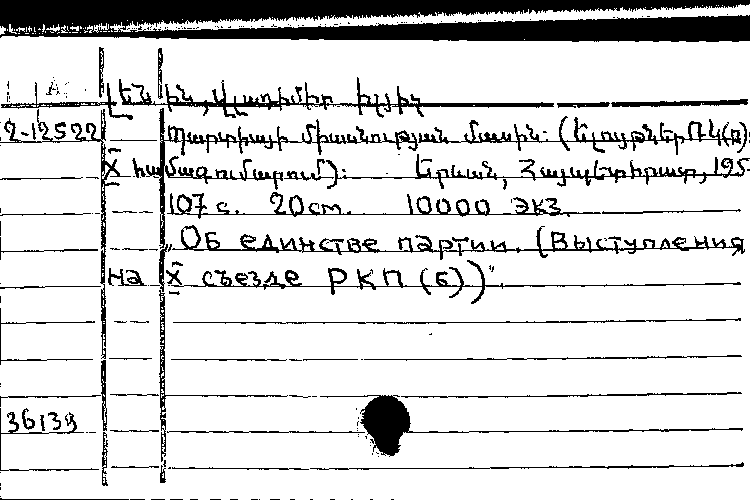 Լենին, Վլադիմիր Իլյիչ
2-12522 Պարտիայի միասնության մասին: (Ելույթներ ՌԿ(բ)
X համագումարում): Երևան, Հայպետհրատ, 195
107 с. 20 cm. 10000 экз.
„Об единстве партии. (Выступления
на X съезде РКП (б))".
36139